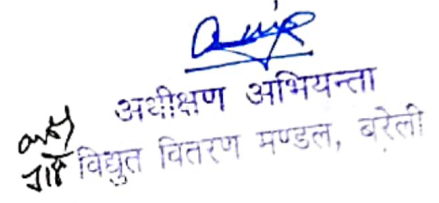 अधीक्षण अभियन्ता
विद्युत वितरण मण्डल, बरेली